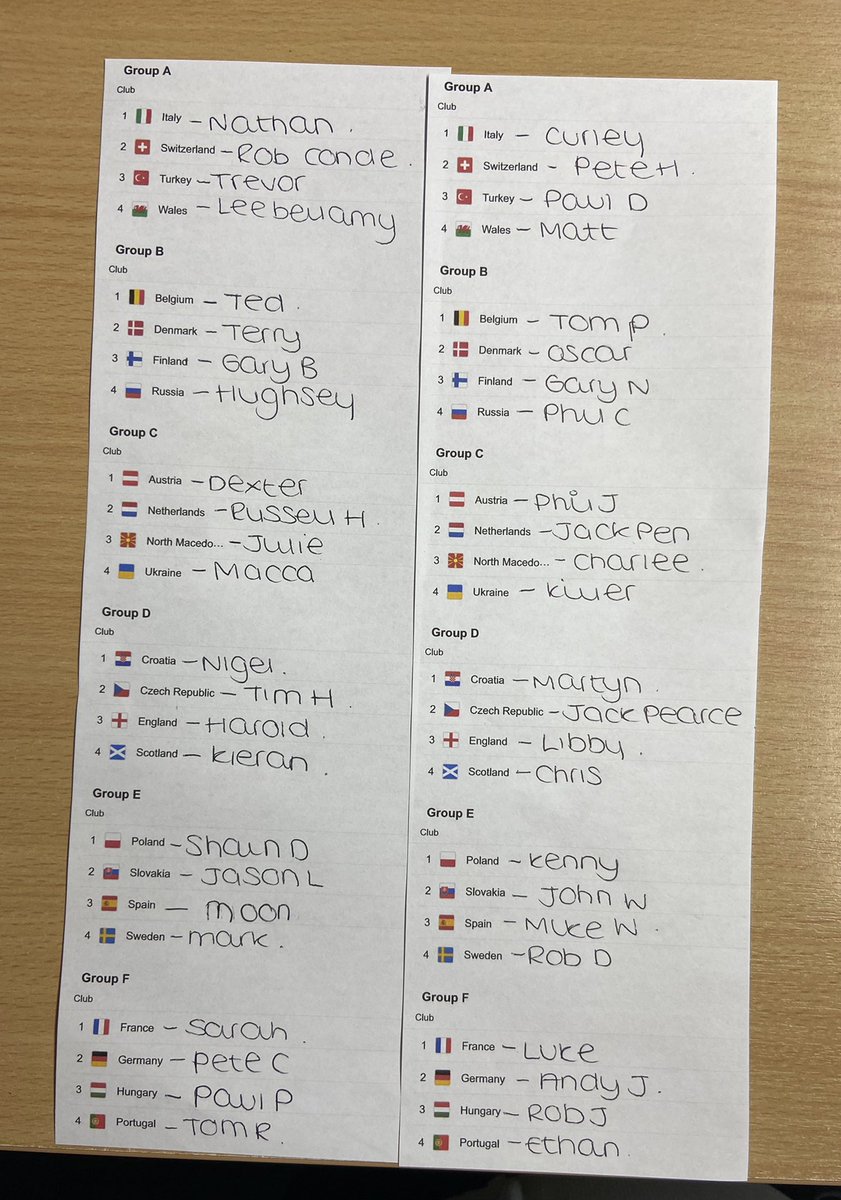 Group A
Club
1 Italy - Nathan.
2 Switzerland - Rob Conde.
3 Turkey - Trevor
4 Wales - Lee bellamy
Group B
Club
1 Belgium - Ted.
2 Denmark - Terry
3 Finland - Gary B
4 Russia - Hughsey
Group C
Club
1 Austria - Dexter
2 Netherlands - Russell H.
3 North Macedo... - Julie
4 Ukraine - Macca
Group D
Club
1 Croatia - Nigel.
2 Czech Republic - Tim H.
3 England - Harold.
4 Scotland - Kieran.
Group E
Club
1 Poland - Shaun D
2 Slovakia - Jason L
3 Spain - Moon
4 Sweden - Mark.
Group F
Club
1 France - Sarah.
2 Germany - Pete C
3 Hungary - Paul P
4 Portugal - Tom R.
Group A
Club
1 Italy - Curley
2 Switzerland - Pete H.
3 Turkey - Paul D
4 Wales - Matt
Group B
Club
1 Belgium - Tom P.
2 Denmark - Oscar
3 Finland - Gary N
4 Russia - Phil C
Group C
Club
1 Austria - Phil J
2 Netherlands - Jack Pen
3 North Macedo... - Charlee.
4 Ukraine - Killer
Group D
Club
1 Croatia - Martyn.
2 Czech Republic - Jack Pearce
3 England - Libby.
4 Scotland - Chris
Group E
Club
1 Poland - Kenny
2 Slovakia - John W
3 Spain - Mike W.
4 Sweden - Rob D
Group F
Club
1 France - Luke
2 Germany - Andy J.
3 Hungary - Rob J
4 Portugal - Ethan.